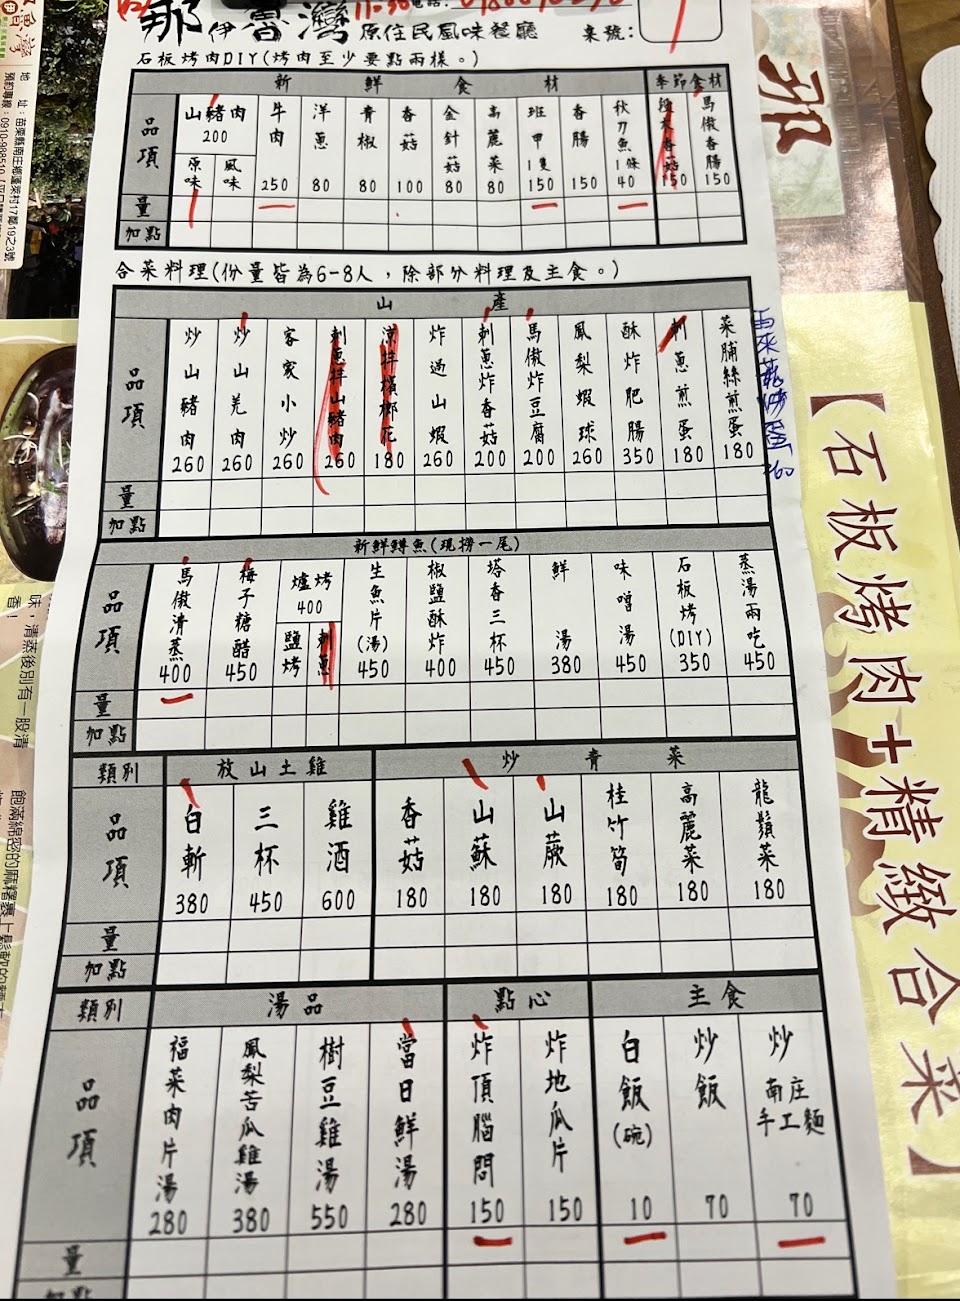 那伊魯灣 原住民風味餐廳 桌號：
石板烤肉DIY(烤肉至少要點兩樣。)
新鮮食材 季節食材
品項 山豬肉 200 原味 風味 牛肉 250 洋蔥 80 青椒 80 香菇 100 金針菇 80 高麗菜 80 班甲1隻 150 香腸 150 秋刀魚1條 40 段木香菇 150 馬傲香腸 150
量
加點
合菜料理(份量皆為6-8人，除部分料理及主食。)
山產
品項 炒山豬肉 260 炒山羌肉 260 客家小炒 260 刺蔥拌山豬肉 260 涼拌檳榔花 180 炸過山蝦 260 刺蔥炸香菇 200 馬傲炸豆腐 200 鳳梨蝦球 260 酥炸肥腸 350 刺蔥煎蛋 180 菜脯絲煎蛋 180
260
量
加點
新鮮鱒魚(現撈一尾)
品項 馬傲清蒸 400 梅子糖醋 450 爐烤 400 鹽烤 刺蔥 生魚片(湯) 450 椒鹽酥炸 400 塔香三杯 450 鮮湯 380 味噌湯 450 石板烤(DIY) 350 蒸湯兩吃 450
量
加點
類別 放山土雞 炒青菜
品項 白斬 380 三杯 450 雞酒 600 香菇 180 山蘇 180 山蕨 180 桂竹筍 180 高麗菜 180 龍鬚菜 180
量
加點
類別 湯品 點心 主食
品項 福菜肉片湯 280 鳳梨苦瓜雞湯 380 樹豆雞湯 550 當日鮮湯 280 炸頂腦問 150 炸地瓜片 150 白飯(碗) 10 炒飯 70 炒南庄手工麵 70
量
加點
【石板烤肉+精緻合菜】
那
魯灣
地 址：苗栗縣南庄鄉蓬萊村17鄰19之3號
預約專線：0910-988510
味，清蒸後別有一股清
香！
飽滿綿密的麻糬裹上鬆軟的